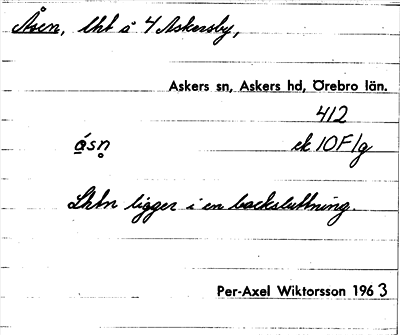 Åsen, lht å 4 Askersby,
Askers sn, Askers hd, Örebro län.
412
ásn̥ ek 10F/g
Lhtn ligger i en backsluttning.
Per-Axel Wiktorsson 1963